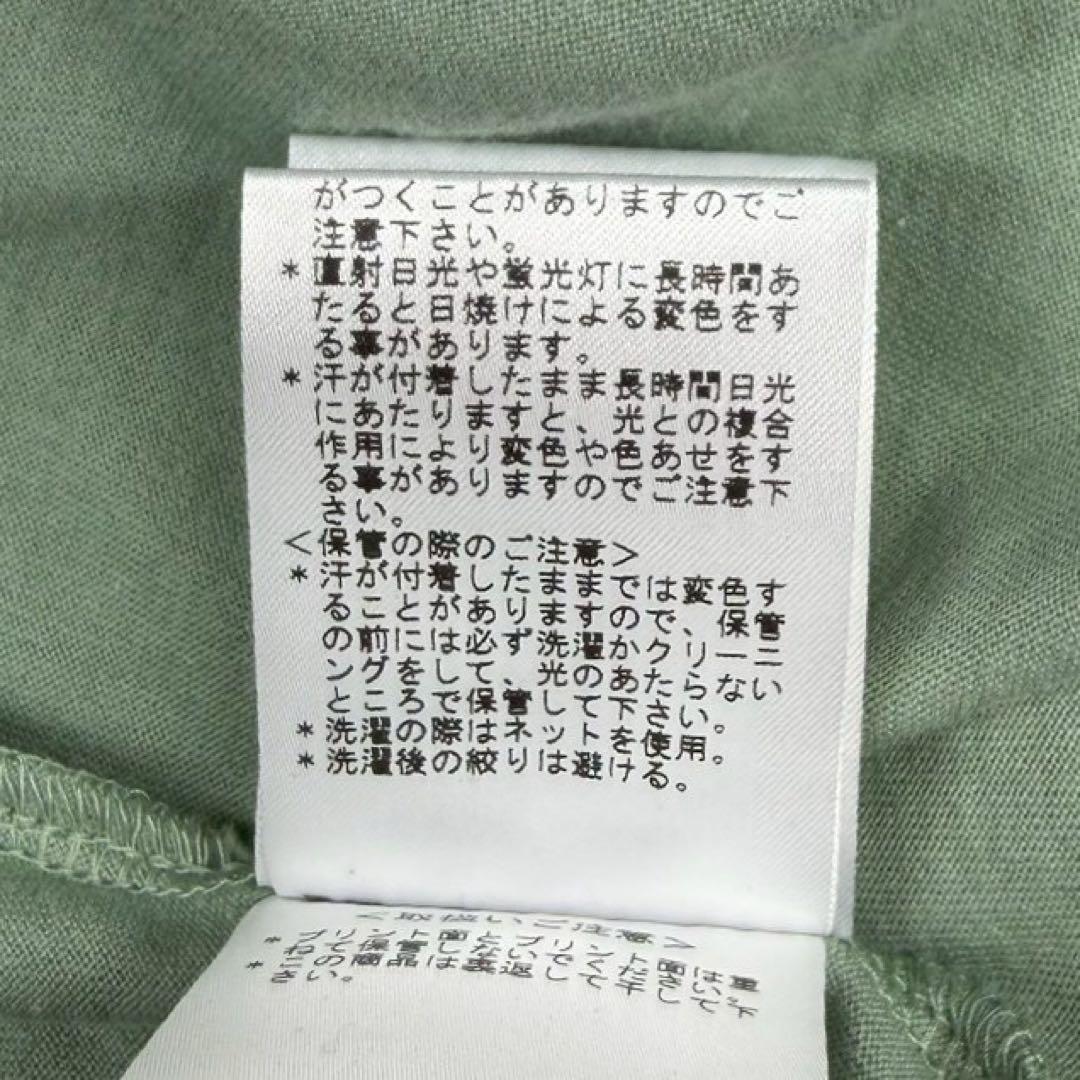 がつくことがありますのでご
注意下さい。
*直射日光や蛍光灯に長時間あ
たると日焼けによる変色をす
る事があります。
*汗が付着したまま長時間日光
にあたりますと、光との複合
作用により変色や色あせをす
る事がありますのでご注意下
さい。
<保管の際のご注意>
*汗が付着したままでは変色す
ることがありますので、保管
の前には必ず洗濯かクリーニ
ングをして、光のあたらない
ところで保管して下さい。
*洗濯の際はネットを使用。
*洗濯後の絞りは避ける。
<取扱いご注意>
*プリント面とプリント面は重
ねて保管しないでください。
*この商品は裏返して干して下
さい。